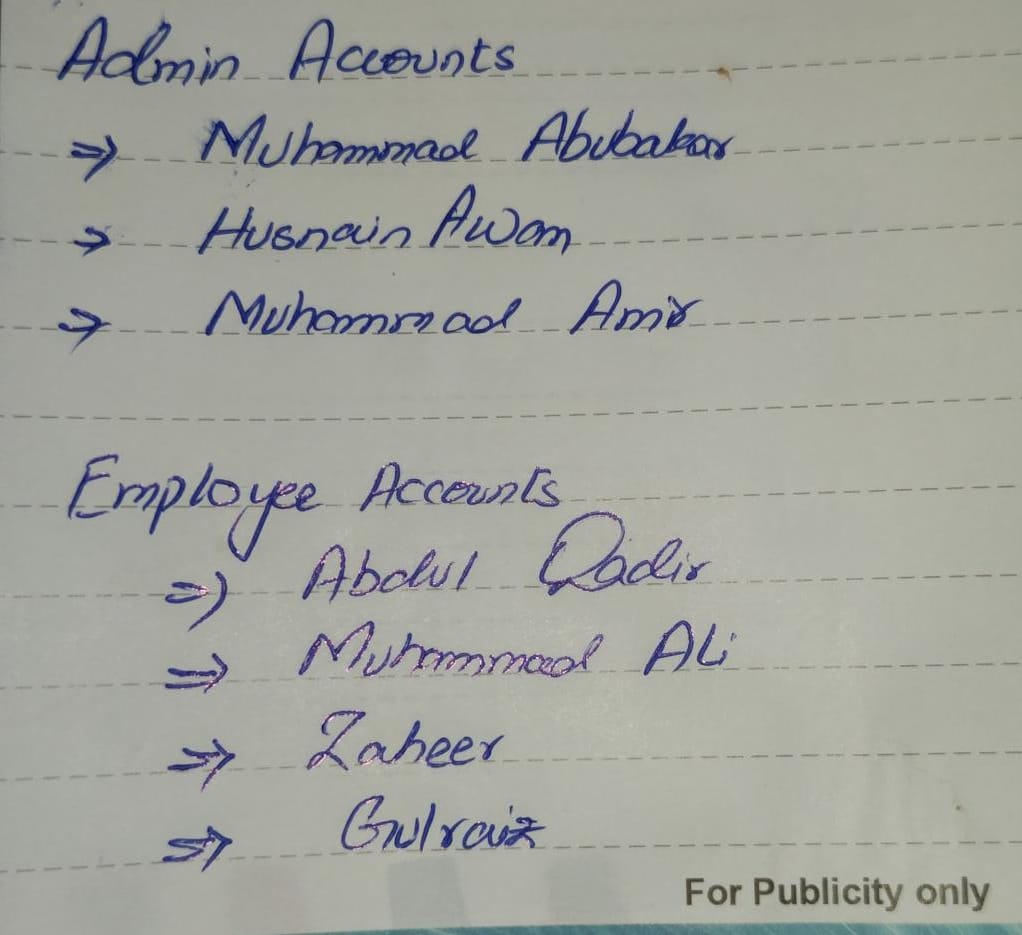 Admin Accounts
⇒ Muhammad Abubakar
⇒ Husnain Awan
⇒ Muhammad Amir
Employee Accounts
⇒ Abdul Qadir
⇒ Muhammad Ali
⇒ Zaheer
⇒ Gulraiz
For Publicity only